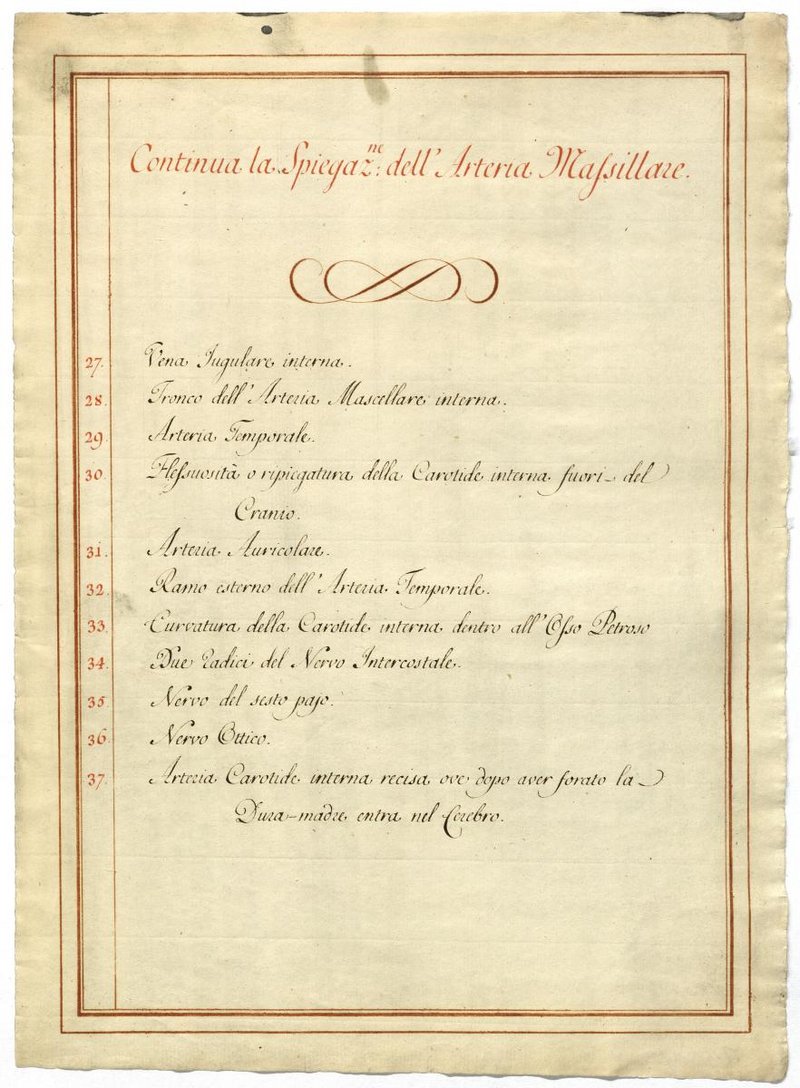 Continua la Spiegaz.ne: dell' Arteria Massillare.
27. Vena Jugulare interna.
28. Tronco dell' Arteria Mascellare interna.
29. Arteria Temporale.
30. Flessuosità o ripiegatura della Carotide interna fuori del
Cranio.
31. Arteria Auricolare.
32. Ramo esterno dell' Arteria Temporale.
33. Curvatura della Carotide interna dentro all' Osso Petroso
34. Due radici del Nervo Intercostale.
35. Nervo del sesto pajo.
36. Nervo Ottico.
37. Arteria Carotide interna recisa ove dopo aver forato la
Dura-madre entra nel Cerebro.